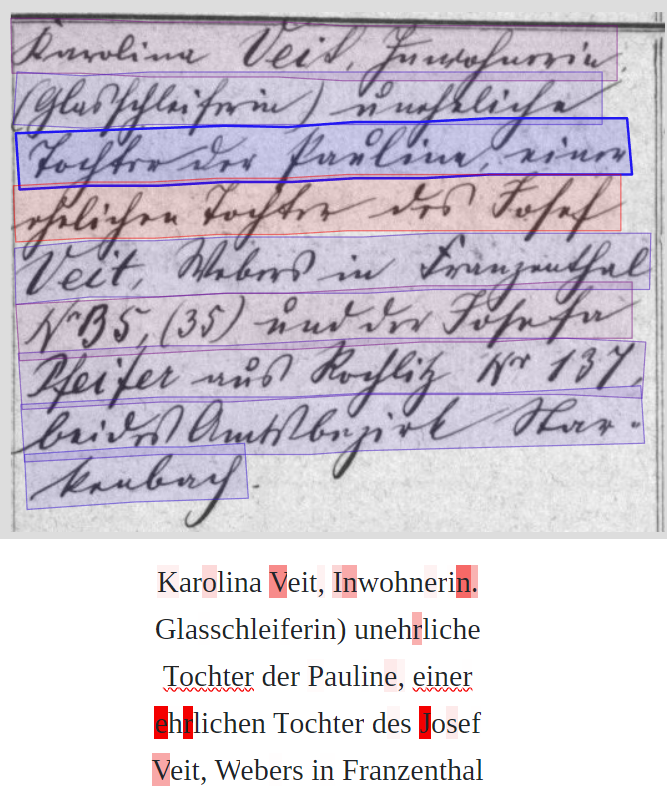 Karolina Veit, Inwohnerin.
(Glasschleiferin) uneheliche
Tochter der Pauline, einer
ehelichen Tochter des Josef
Veit, Webers in Franzenthal
Nr 35, (35) und der Josefa
Pfeifer aus Rochlitz Nr 137,
beides Amtsbezirk Star-
kenbach.
Karolina Veit, Inwohnerin.
Glasschleiferin) unehrliche
Tochter der Pauline, einer
ehrlichen Tochter des Josef
Veit, Webers in Franzenthal